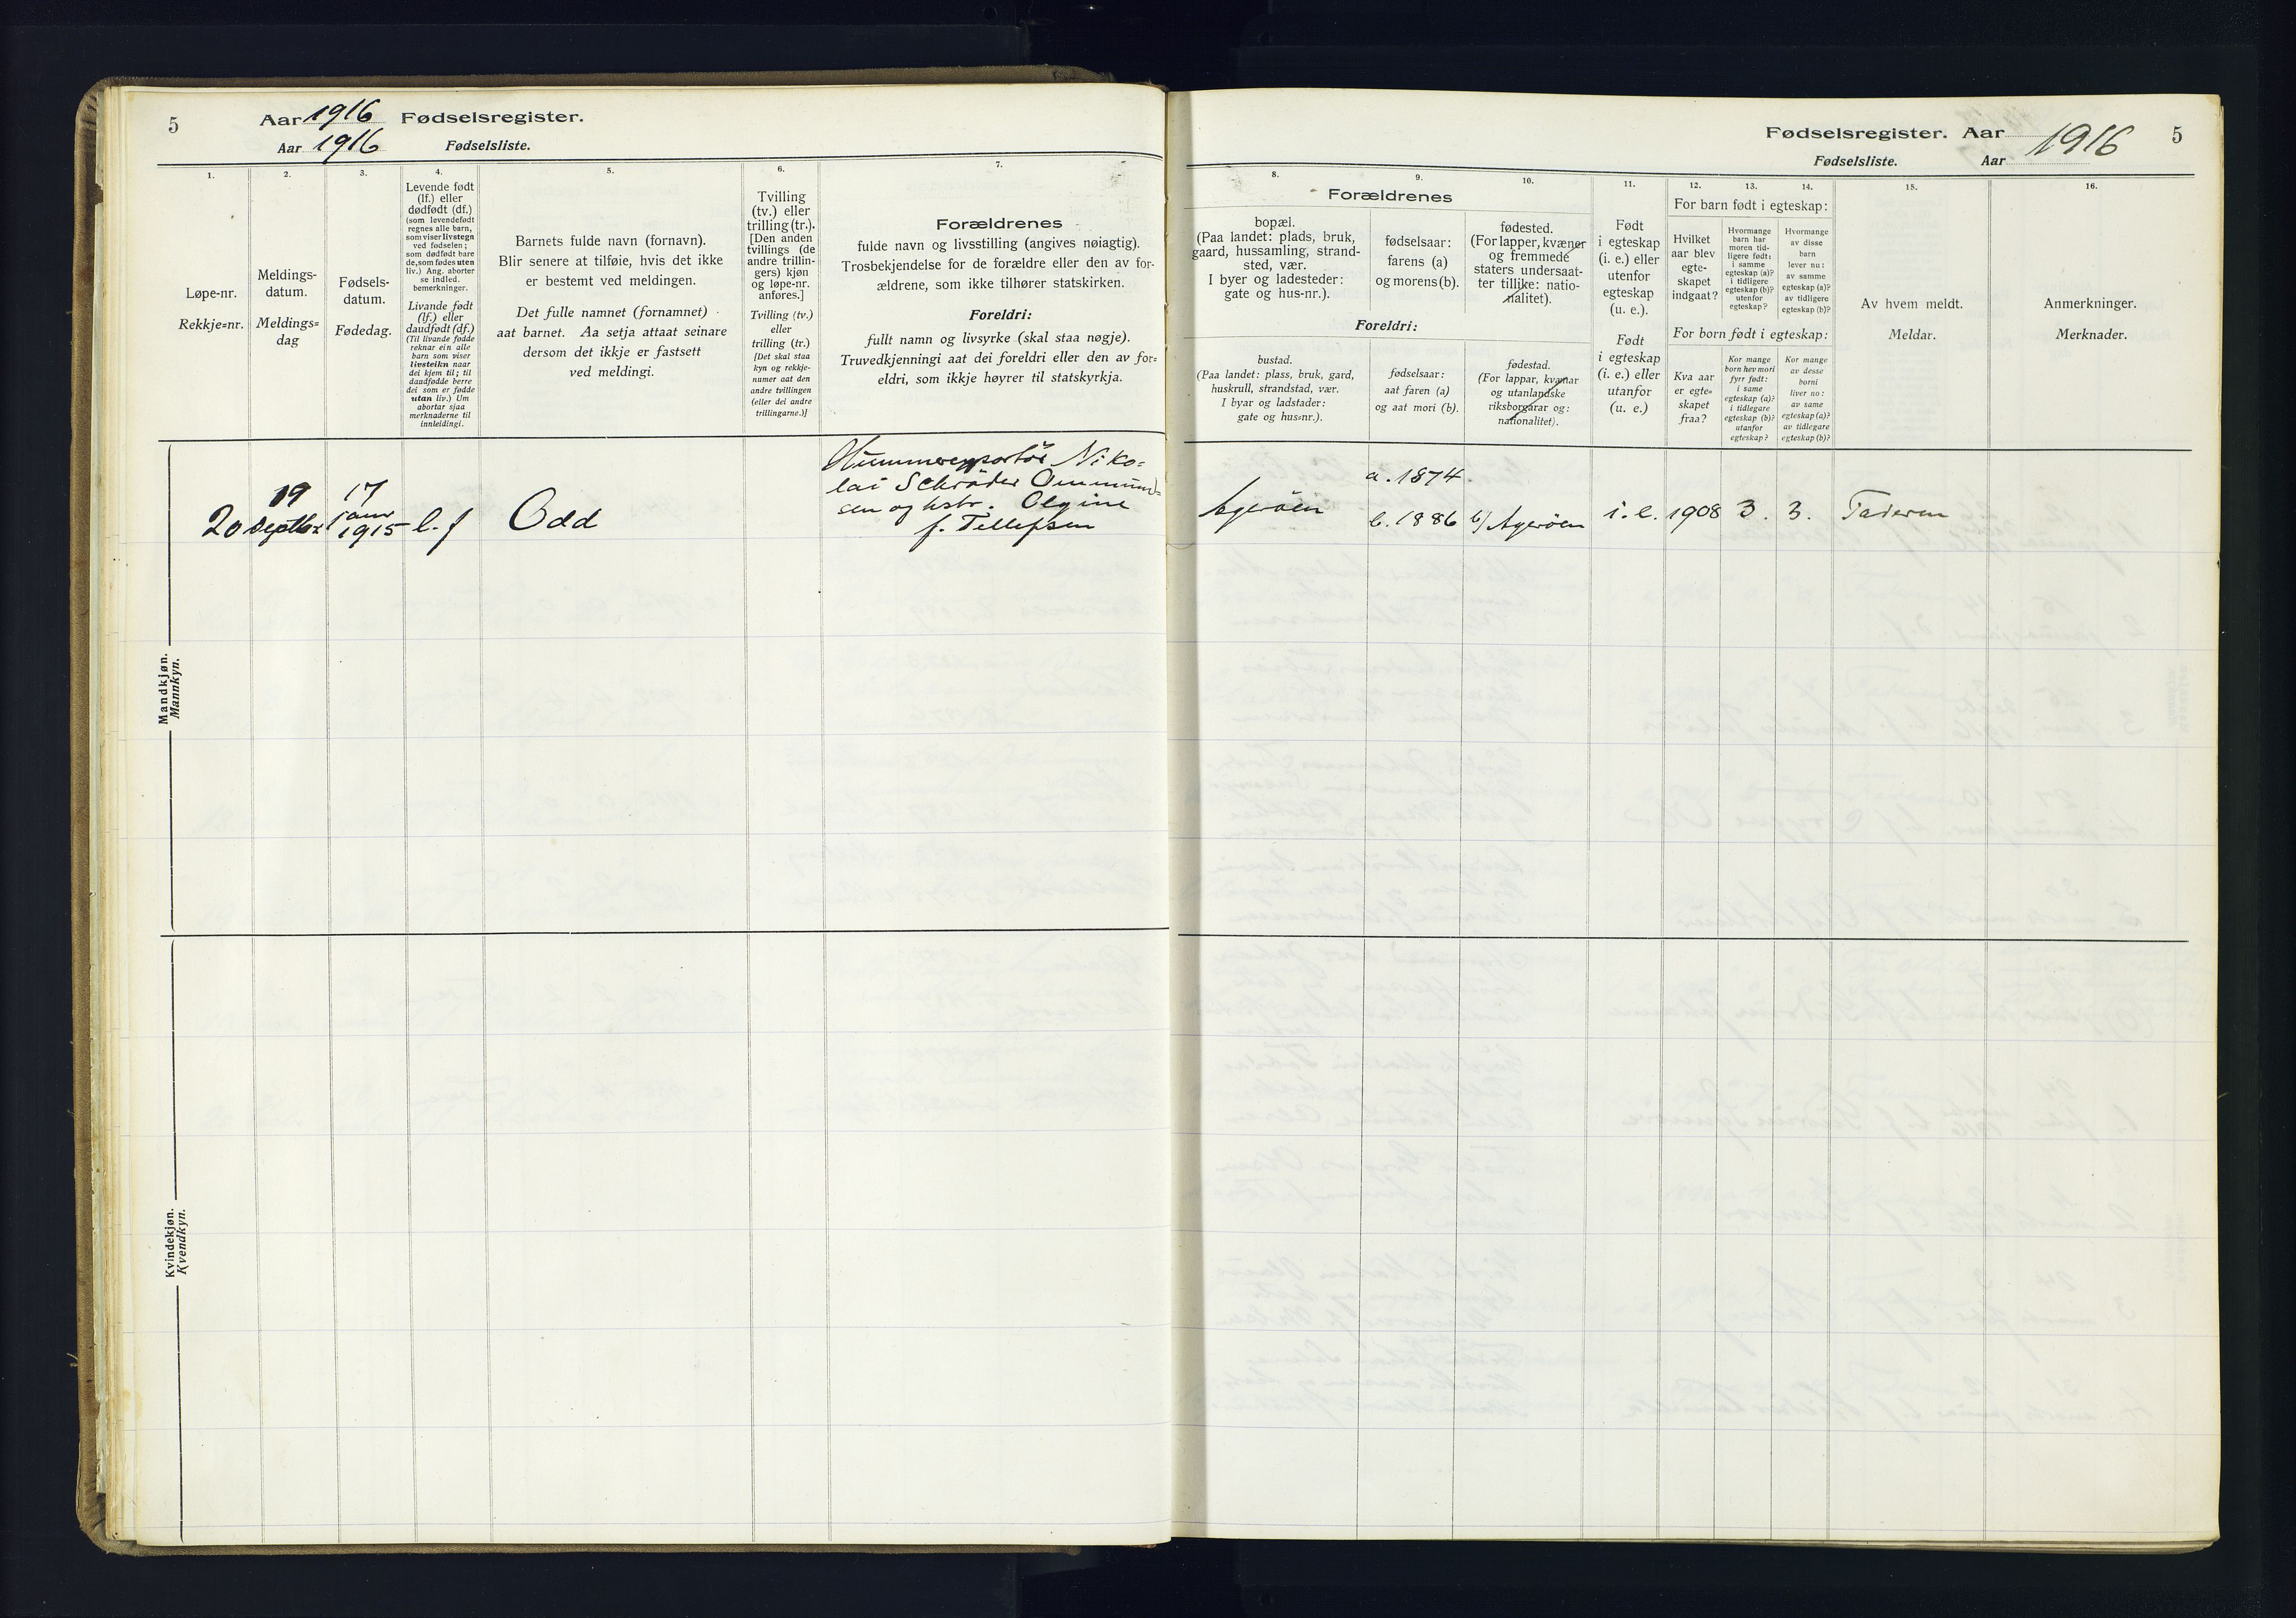 5 Aar 1916 Fødselsregister.
Aar 1916 Fødselsliste.
1. 2. 3. 4. 5. 6. 7.
Løpe-nr.
Rekkje=nr.
Meldings-
datum.
Meldings=
dag
Fødsels-
datum.
Fødedag.
Levende født
(lf.) eller
dødfødt (df.)
(som levendefødt
regnes alle barn,
som viser livstegn
ved fødselen;
som dødfødt bare
de, som fødes uten
liv.) Ang. aborter
se indled.
bemerkninger.
Livande født
(lf.) eller
daudfødt (df.)
(Til livande fødde
reknar ein alle
barn som viser
livsteikn naar
dei kjem til; til
daudfødde berre
dei som er fødde
utan liv.) Um
abortar sjaa
merknaderne til
innleidingi.
Barnets fulde navn (fornavn).
Blir senere at tilføie, hvis det ikke
er bestemt ved meldingen.
Det fulle namnet (fornamnet)
aat barnet. Aa setja attaat seinare
dersom det ikkje er fastsett
ved meldingi.
Tvilling
(tv.) eller
trilling (tr.).
[Den anden
tvillings (de
andre trillin-
gers) kjøn
og løpe-nr.
anføres.]
Tvilling (tv.)
eller
trilling (tr.)
[Det skal staa
kyn og rekkje-
numer aat den
andre tvillingen
(eller dei andre
trillingarne.)]
Forældrenes
fulde navn og livsstilling (angives nøiagtig).
Trosbekjendelse for de forældre eller den av for-
ældrene, som ikke tilhører statskirken.
Foreldri:
fullt namn og livsyrke (skal staa nøgje).
Truvedkjenningi aat dei foreldri eller den av for=
eldri, som ikkje høyrer til statskyrkja.
Mandkjøn.
Mannkyn.
20
19
Septbr
17
janr
1915
l. f
Odd
Hummerexportør Niko=
lai Schrøder Ommund=
sen og hstr. Olgine
f. Tellefsen
Kvindekjøn.
Kvendkyn.
Fødselsregister. Aar 1916 5
Fødselsliste. Aar
8. 9. 10. 11. 12. 13. 14. 15. 16.
Forældrenes
bopæl.
(Paa landet: plads, bruk,
gaard, hussamling, strand-
sted, vær.
I byer og ladesteder:
gate og hus-nr.).
fødselsaar:
farens (a)
og morens (b).
fødested.
(For lapper, kvæner
og fremmede
staters undersaat-
ter tillike: natio-
nalitet).
Foreldri:
bustad.
(Paa landet: plass, bruk, gard,
huskrull, strandstad, vær.
I byar og ladstader:
gate og hus=nr.).
fødselsaar:
aat faren (a)
og aat mori (b).
fødestad.
(For lappar, kvænar
og utanlandske
riksborgarar og:
nationalitet).
Født
i egteskap
(i. e.) eller
utenfor
egteskap
(u. e.).
Født
i egteskap
(i. e.) eller
utanfor
(u. e.)
For barn født i egteskap:
Hvilket
aar blev
egte-
skapet
indgaat?
Hvormange
barn har
moren tid-
ligere født:
i samme
egteskap (a)?
i tidligere
egteskap (b)?
utenfor
egteskap?
Hvormange
av disse
barn
lever nu:
av samme
egteskap (a)?
av tidligere
egteskap (b)?
For born født i egteskap:
Kva aar
er egte=
skapet
fraa?
Kor mange
born hev mori
fyrr født:
i same
egteskap (a)?
i tidlegare
egteskap (b)?
utanfor
egteskap?
Kor mange
av desse
borni
liver no:
av same
egteskap (a)?
av tidlegare
egteskap (b)?
Av hvem meldt.
Meldar.
Anmerkninger.
Merknader.
Agerøen
a. 1874.
b. 1886
b) Agerøen
i. e.
1908
3.
3.
Faderen